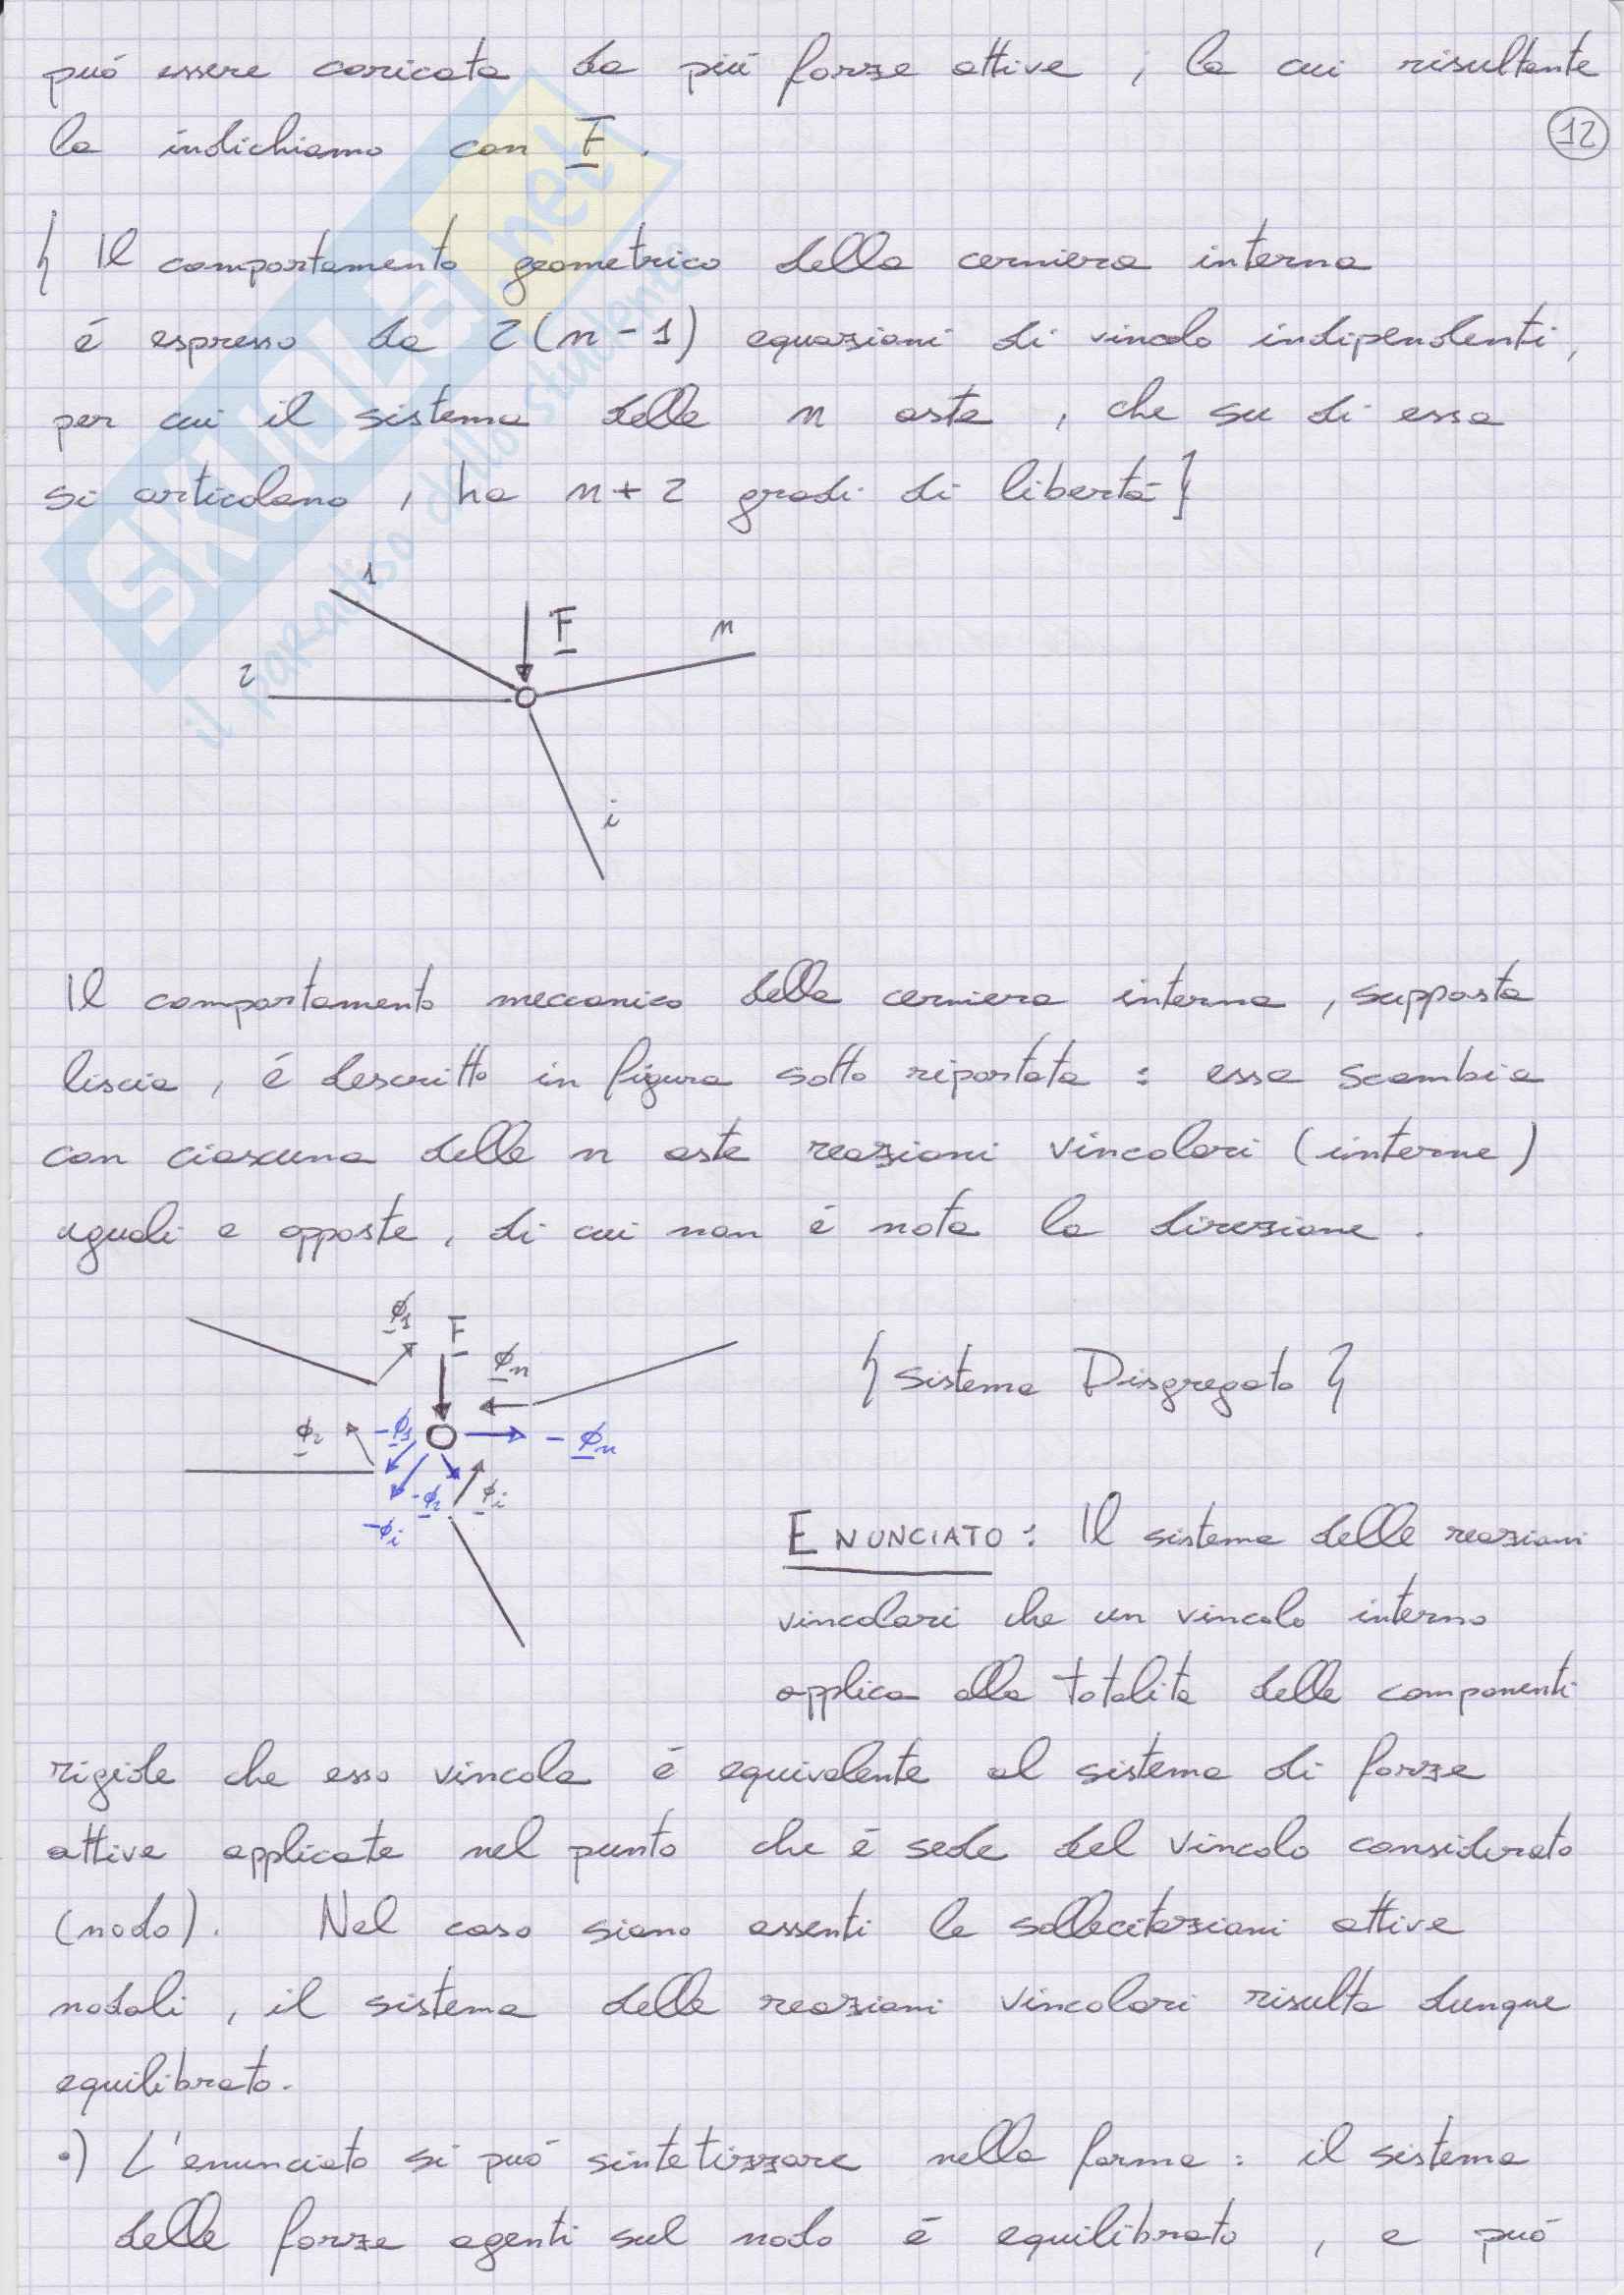 può essere caricata da più forze attive, la cui risultante
la indichiamo con F.
12
{ Il comportamento geometrico della cerniera interna
è espresso da 2(n-1) equazioni di vincolo indipendenti,
per cui il sistema delle n aste, che su di essa
si articolano, ha n+2 gradi di libertà }
1
F
n
2
i
Il comportamento meccanico della cerniera interna, supposta
liscia, è descritto in figura sotto riportata: essa scambia
con ciascuna delle n aste reazioni vincolari (interne)
uguali e opposte, di cui non è nota la direzione.
ϕ1
F
ϕn
{ Sistema Disgregato }
ϕ2
-ϕ1
-ϕn
-ϕ2
ϕi
-ϕi
ENUNCIATO: Il sistema delle reazioni
vincolari che un vincolo interno
applica alla totalità delle componenti
rigide che esso vincola è equivalente al sistema di forze
attive applicate nel punto che è sede del vincolo considerato
(nodo). Nel caso siano assenti le sollecitazioni attive
nodali, il sistema delle reazioni vincolari risulta dunque
equilibrato.
•) L'enunciato si può sintetizzare nella forma: il sistema
delle forze agenti sul nodo è equilibrato, e può
SKUOLA.net
il paradiso dello studente